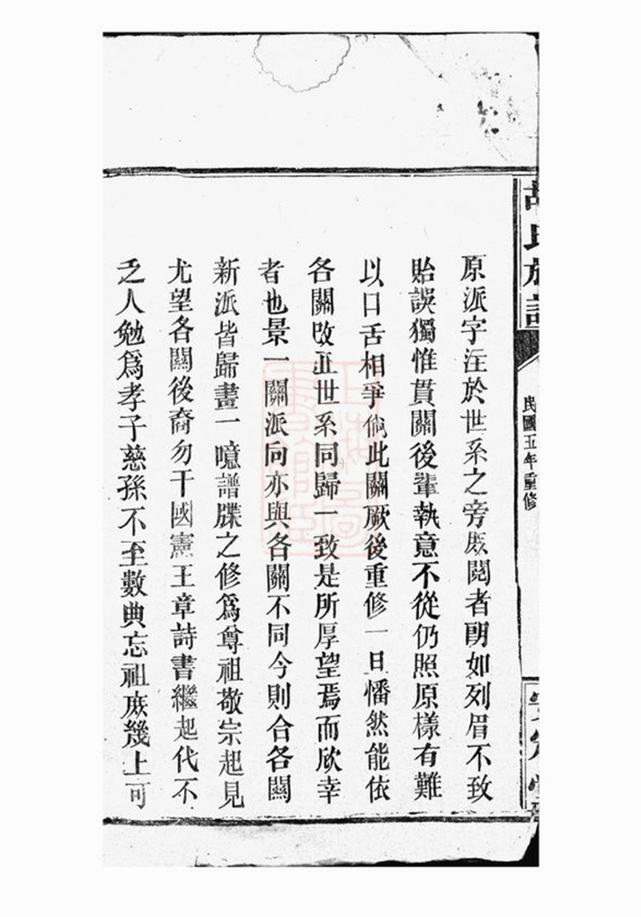 胡氏族譜
民國五年重修
原派字注於世系之旁庶閱者朗如列眉不致
貽誤獨惟貫關後輩執意不從仍照原樣有難
以口舌相爭倘此關厥後重修一旦幡然能依
各關改正世系同歸一致是所厚望焉而欣幸
者也景一關派向亦與各關不同今則合各關
新派皆歸畫一噫譜牒之修為尊祖敬宗起見
尤望各關後裔勿干國憲王章詩書繼起代不
乏人勉為孝子慈孫不至數典忘祖庶幾上可